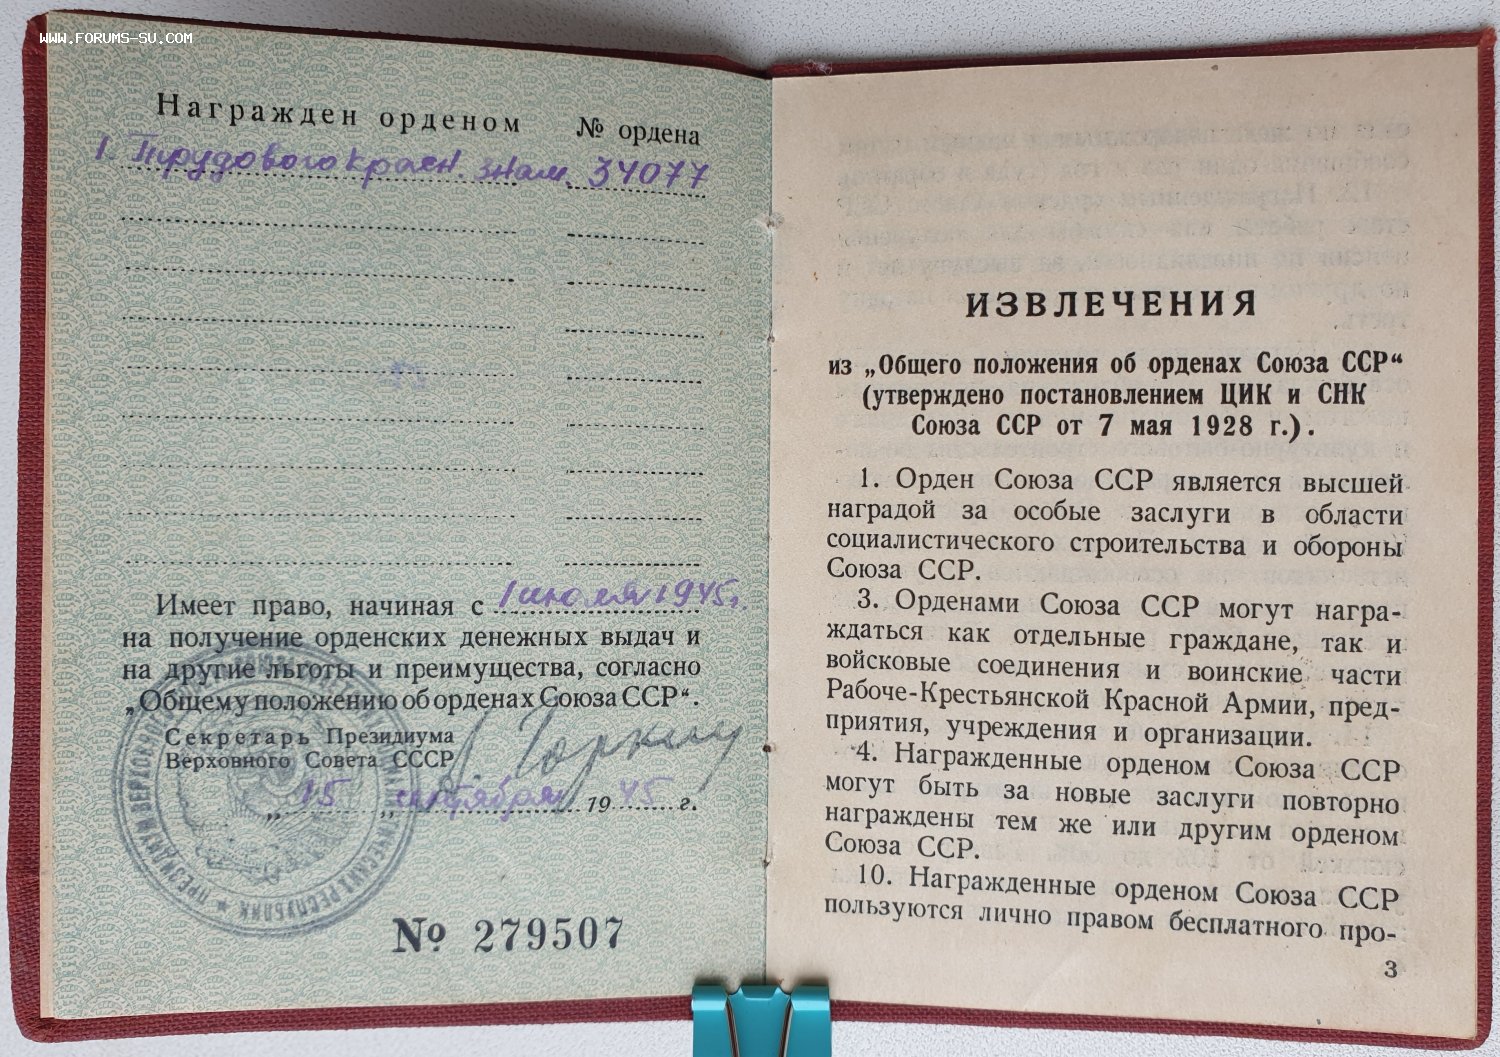 WWW.FORUMS-SU.COM
Награжден орденом № ордена
1. Трудового Красн. Знам. 34077
Имеет право, начиная с 1 июля 1945г.
на получение орденских денежных выдач и
на другие льготы и преимущества, согласно
„Общему положению об орденах Союза ССР“.
Секретарь Президиума
Верховного Совета СССР
А. Горкин
„15„ сентября 1945 г.
№ 279507
ИЗВЛЕЧЕНИЯ
из „Общего положения об орденах Союза ССР“
(утверждено постановлением ЦИК и СНК
Союза ССР от 7 мая 1928 г.).
1. Орден Союза ССР является высшей
наградой за особые заслуги в области
социалистического строительства и обороны
Союза ССР.
3. Орденами Союза ССР могут награ-
ждаться как отдельные граждане, так и
войсковые соединения и воинские части
Рабоче-Крестьянской Красной Армии, пред-
приятия, учреждения и организации.
4. Награжденные орденом Союза ССР
могут быть за новые заслуги повторно
награждены тем же или другим орденом
Союза ССР.
10. Награжденные орденом Союза ССР
пользуются лично правом бесплатного про-
3